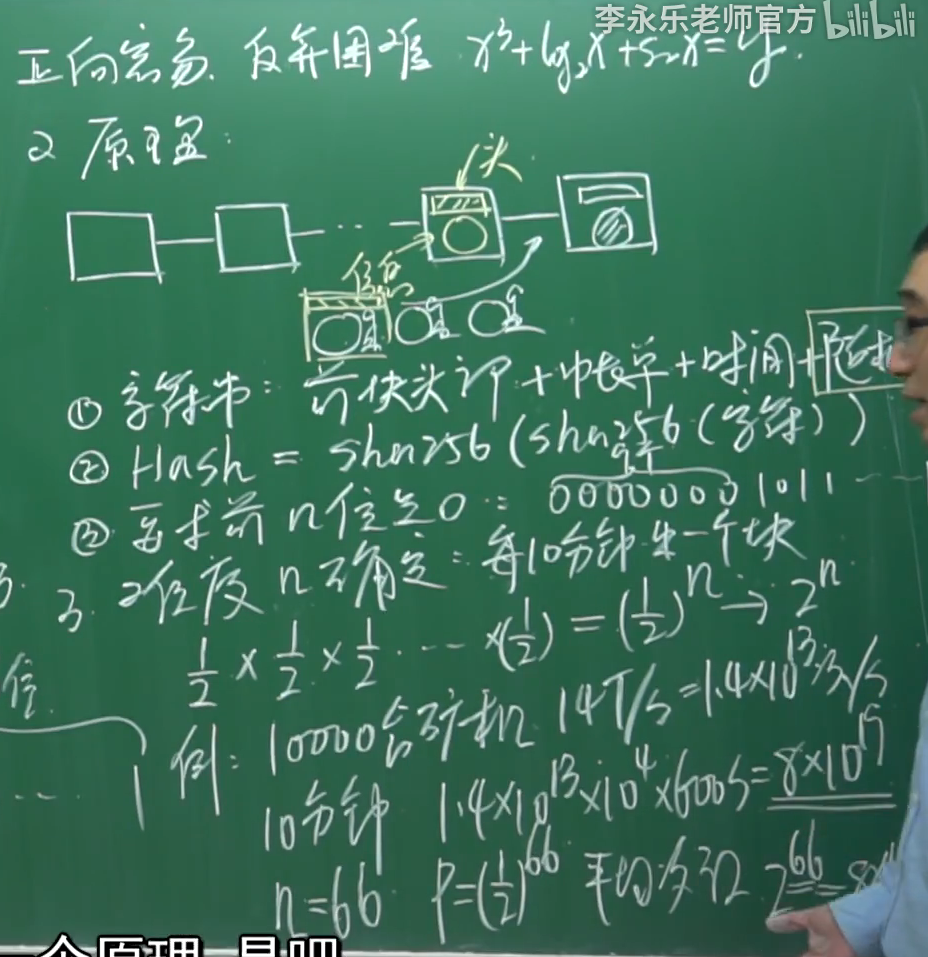 李永乐老师官方 bilibili
正向容易. 反算困难 x³+log₂x+sinx=y.
2 原理:
头
信息
① 字符串: 前块头部+账单+时间+随机
② Hash = sha256 (sha256 (字符串))
③ 要求前n位是0: 00000001011……
3. 难度n的确定: 每10分钟生一个块
1/2 × 1/2 × 1/2 …… ×(1/2) = (1/2)ⁿ → 2ⁿ
信
例: 10000台矿机 14T/s=1.4×10¹³次/s
10分钟 1.4×10¹³×10⁴×600s=8×10¹⁹
n=66 P=(1/2)⁶⁶ 平均 2⁶⁶=
一个原理 是吧